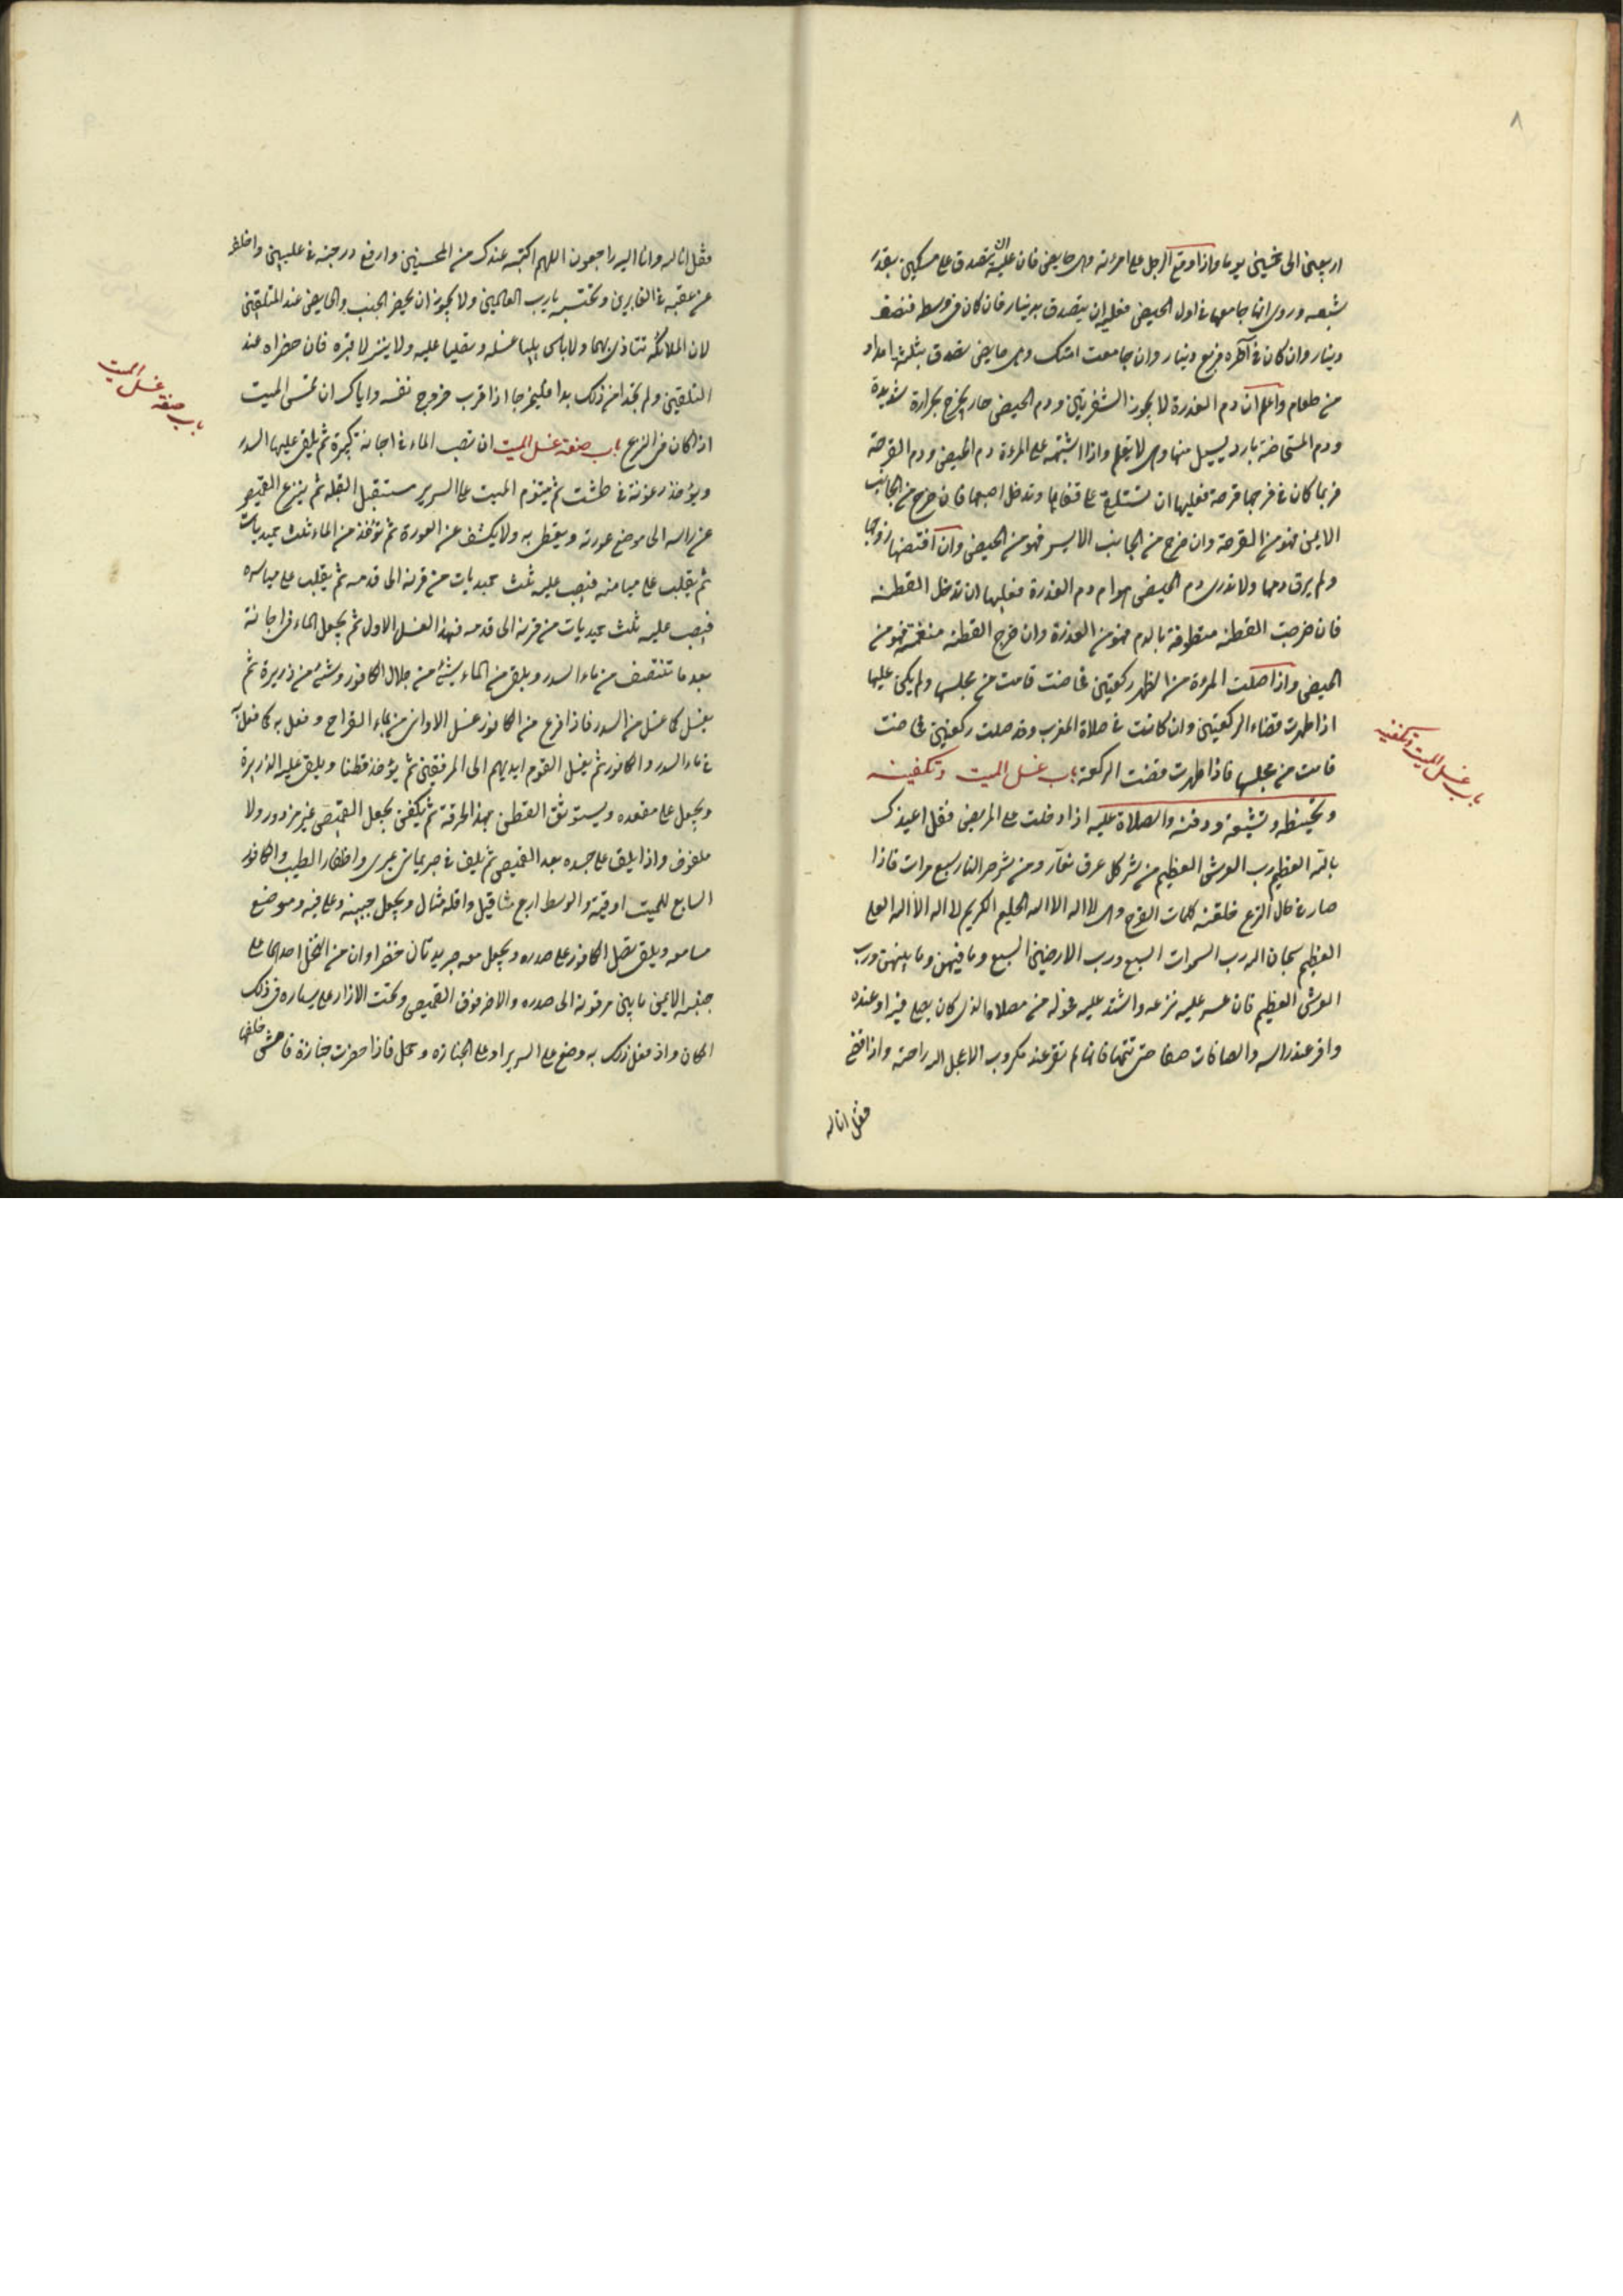 ٨
اربعين الى خمسين يوما واذا وقع الرجل على امرئته وهي حايض فان عليه ان يتصدق على مسكين بقدر
شبعه وروى انما جامعها في اول الحيض فعليه ان يتصدق بدينار فان كان في وسطه فنصف
دينار وان كان في آخره فربع دينار وان جامعت امتك وهي حايض تصدق بثلثة امداد
من طعام واعلم ان دم العذرة لا يجوز الشفرتين ودم الحيض حار يخرج بحرارة شديدة
ودم المستحاضة بارد يسيل منها وهي لا تعلم واذا اشتبه على المرءة دم الحيض ودم القرحة
فربما كان في فرجها قرحة فعليها ان تستلقي على قفاها وتدخل اصبعها فان خرج من الجانب
الايمن فهو من القرحة وان خرج من الجانب الايسر فهو من الحيض وان افتضها زوجها
ولم يرق دمها ولا تدري دم الحيض هو ام دم العذرة فعليها ان تدخل القطنه
فان خرجت القطنه متطوقة بالدم فهو من العذرة وان خرج القطنه منغمسة فهو من
الحيض واذا صلت المرءة من الظهر ركعتين فحاضت قامت من مجلسها ولم يكن عليها
اذا طهرت قضاء الركعتين وان كانت في صلاة المغرب وقد صلت ركعتين فحاضت
قامت من مجلسها فاذا طهرت قضت الركعة باب غسل الميت وتكفينه
باب غسل الميت وتكفينه
وتحنيطه وتشييعه ودفنه والصلاة عليه اذا دخلت على المريض فقل اعيذك
بالله العظيم رب العرش العظيم من شر كل عرق نعار ومن شر حر النار سبع مرات فاذا
صار في حال النزع فلقنه كلمات الفرج وهي لا اله الا الله الحليم الكريم لا اله الا الله العلي
العظيم سبحان الله رب السموات السبع ورب الارضين السبع وما فيهن وما بينهن ورب
العرش العظيم فان عسر عليه نزعه واشتد عليه فحوله من مصلاه الذي كان يصلي فيه او عنده
واقر عند راسه والصافات صفا حتى تتمها فانها لم تقر عند مكروب الا عجل الله راحته واذا قضى
فقل انا لله
فقل انا لله وانا اليه راجعون اللهم اكتبه عندك من المحسنين وارفع درجته في عليين واخلف
على عقبه في الغابرين ونحتسبه يا رب العالمين ولا يجوز ان يحضر الجنب والحايض عند التلقين
لان الملائكة تتاذى بهما ولا باس بان يليا غسله ويصليا عليه ولا ينزلا قبره فان حضراه عند
التلقين ولم تجدا من ذلك بدا فليخرجا اذا قرب خروج نفسه واياك ان تمس الميت
اذا كان في النزع باب صفة غسل الميت ان تصب الماء في اجانة كبيرة ثم يلقى عليها السدر
باب صفة غسل الميت
ويؤخذ رغوته في طشت ثم ينوم الميت على السرير مستقبل القبله ثم ينزع القميص
عن راسه الى موضع عورته ويغطى به ولا يكشف عن العورة ثم تؤخذ من الماء ثلث حميديات
ثم يقلب على ميامنه فيصب عليه ثلث حميديات من قرنه الى قدمه ثم يقلب على مياسره
فيصب عليه ثلث حميديات من قرنه الى قدمه فهذا الغسل الاول ثم يجعل الماء في اجانة
بعد ما تنظف من ماء السدر ويلقى من الماء بشئ من جلال الكافور وشئ من ذريرة ثم
يغسل كما غسل من السدر فاذا فرغ من الكافور غسل الاواني من بماء القراح وفعل به كما فعل به
في ماء السدر والكافور ثم يغسل القوم ايديهم الى المرفقين ثم يؤخذ قطنا ويلقى عليه الذريرة
ويجعل على مقعده ويستوثق القطن بهذا الخرقة ثم يكفن يجعل القميص غير مزرور ولا
ملفوف واذا يلقى على جسده بعد القميص ثم يلف في حبر يماني عبري واظفار الطيب والكافور
السابغ للميت اوقية والوسط اربع مثاقيل واقله مثال ويجعل جبينه وعلى فيه وموضع
مسامعه ويلقى فضل الكافور على صدره ويجعل معه جريدتان خضراوان من النخل احدهما على
جنبه الايمن ما بين ترقوته الى صدره والاخر فوق القميص وتحت الازار على يساره في ذلك
المكان واذ فعل ذلك به وضع على السرير او على الجنازه وحمل فاذا حضرت جنازة فامش خلفها